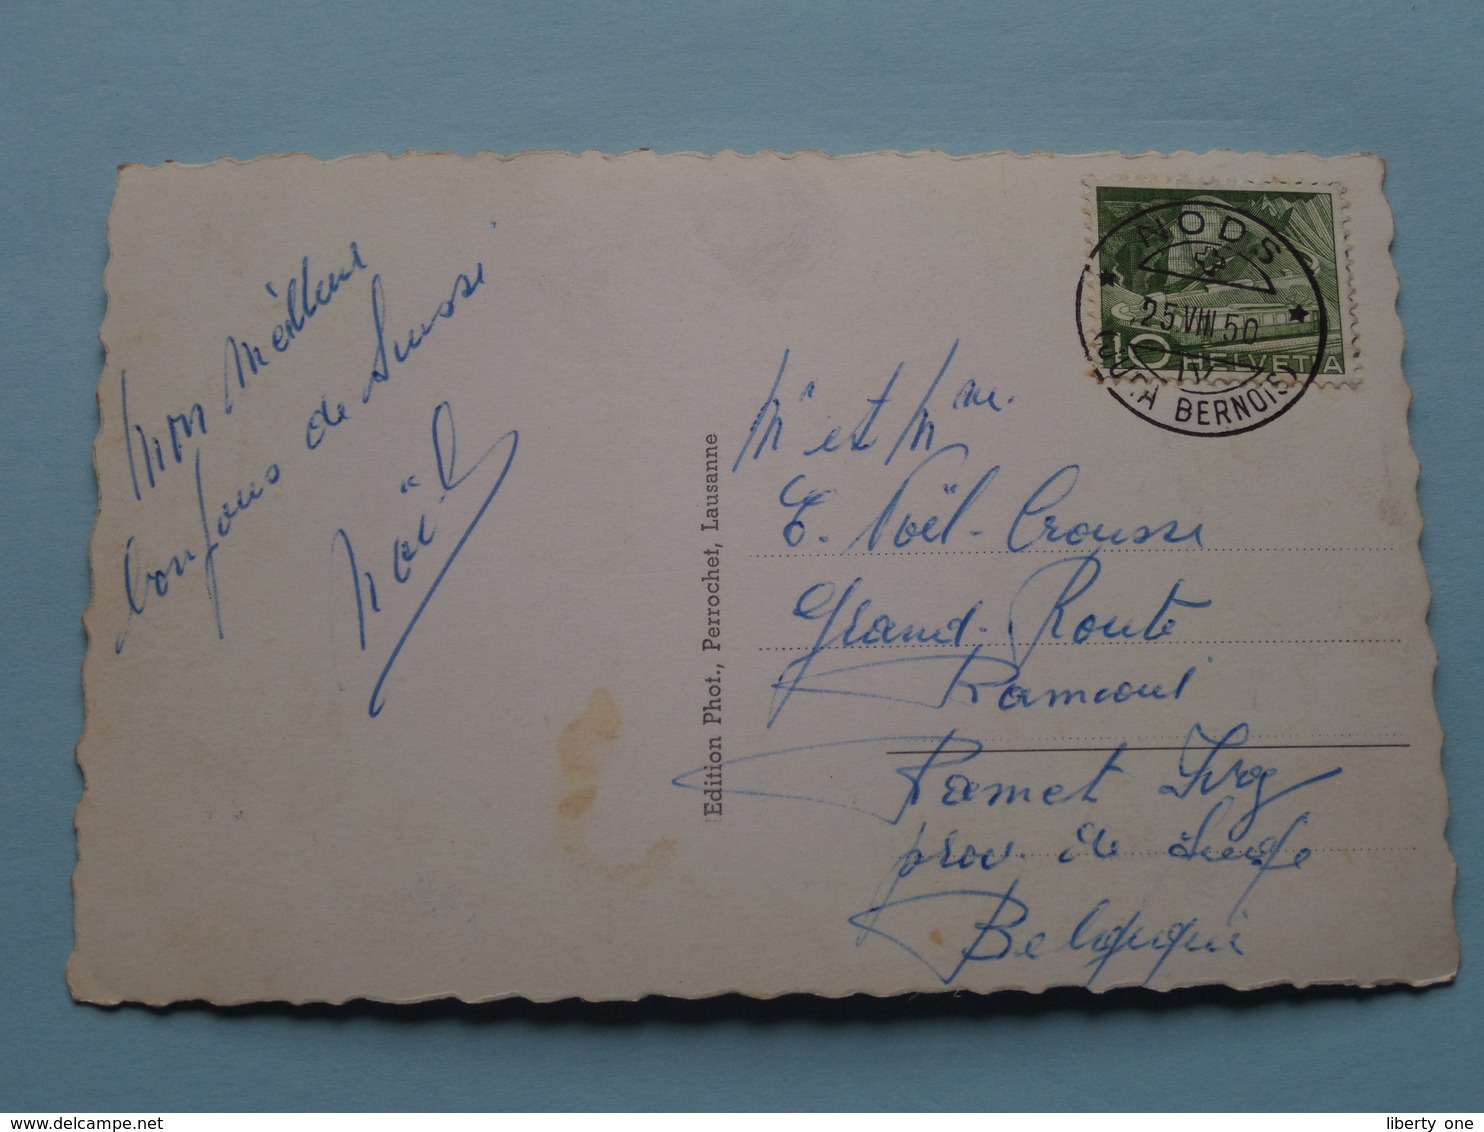 Mon meilleur
bonjour de Suisse
Noël
Edition Phot., Perrochet, Lausanne
NODS
25 VIII 50
(JURA BERNOIS)
10 HELVETIA
Mr et Mme.
E. Noël-Crousse
Grand-Route
Ramioul
Ramet Ivoz
prov. de Liège
Belgique
delcampe.net
liberty one